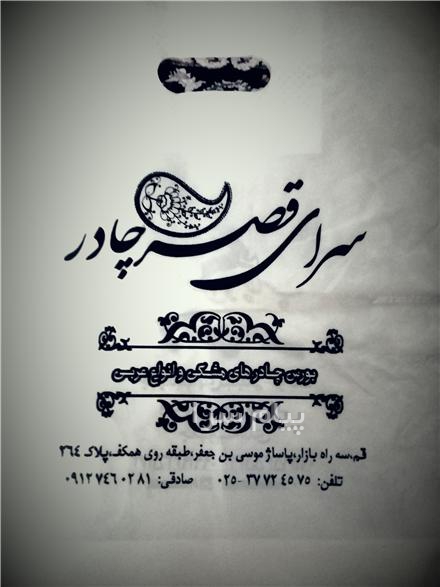 سرای قصر چادر
بورس چادرهای مشکی و انواع عربی
پیام سرا
قم،سه راه بازار،پاساژ موسی بن جعفر،طبقه روی همکف،پلاک ۲۶۴
تلفن: ۳۷۷۲۴۵۷۵-۰۲۵ صادقی: ۰۹۱۲۷۴۶۰۲۸۱